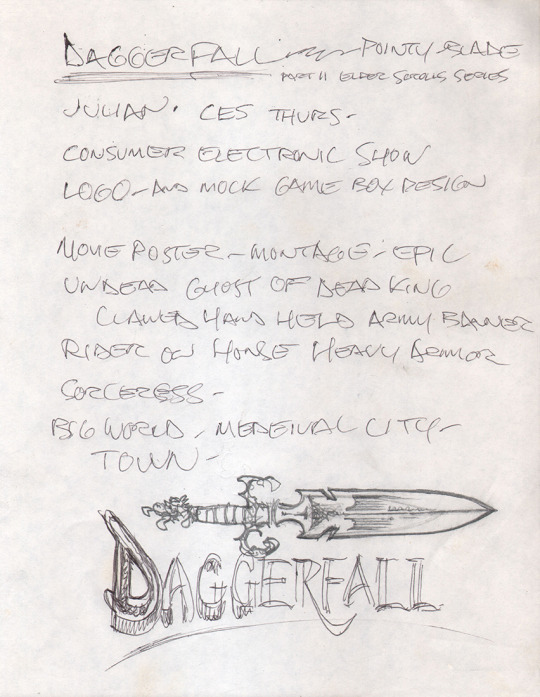 DAGGERFALL - POINTY BLADE
PART II ELDER SCROLLS SERIES
JULIAN. CES THURS-
CONSUMER ELECTRONIC SHOW
LOGO-AND MOCK GAME BOX DESIGN
MOVIE POSTER-MONTAGE-EPIC
UNDEAD GHOST OF DEAD KING
CLAWED HAND HELD ARMY BANNER
RIDER ON HORSE HEAVY ARMOR
SORCERESS-
BIG WORLD, MEDEIVAL CITY-
TOWN-
DAGGERFALL